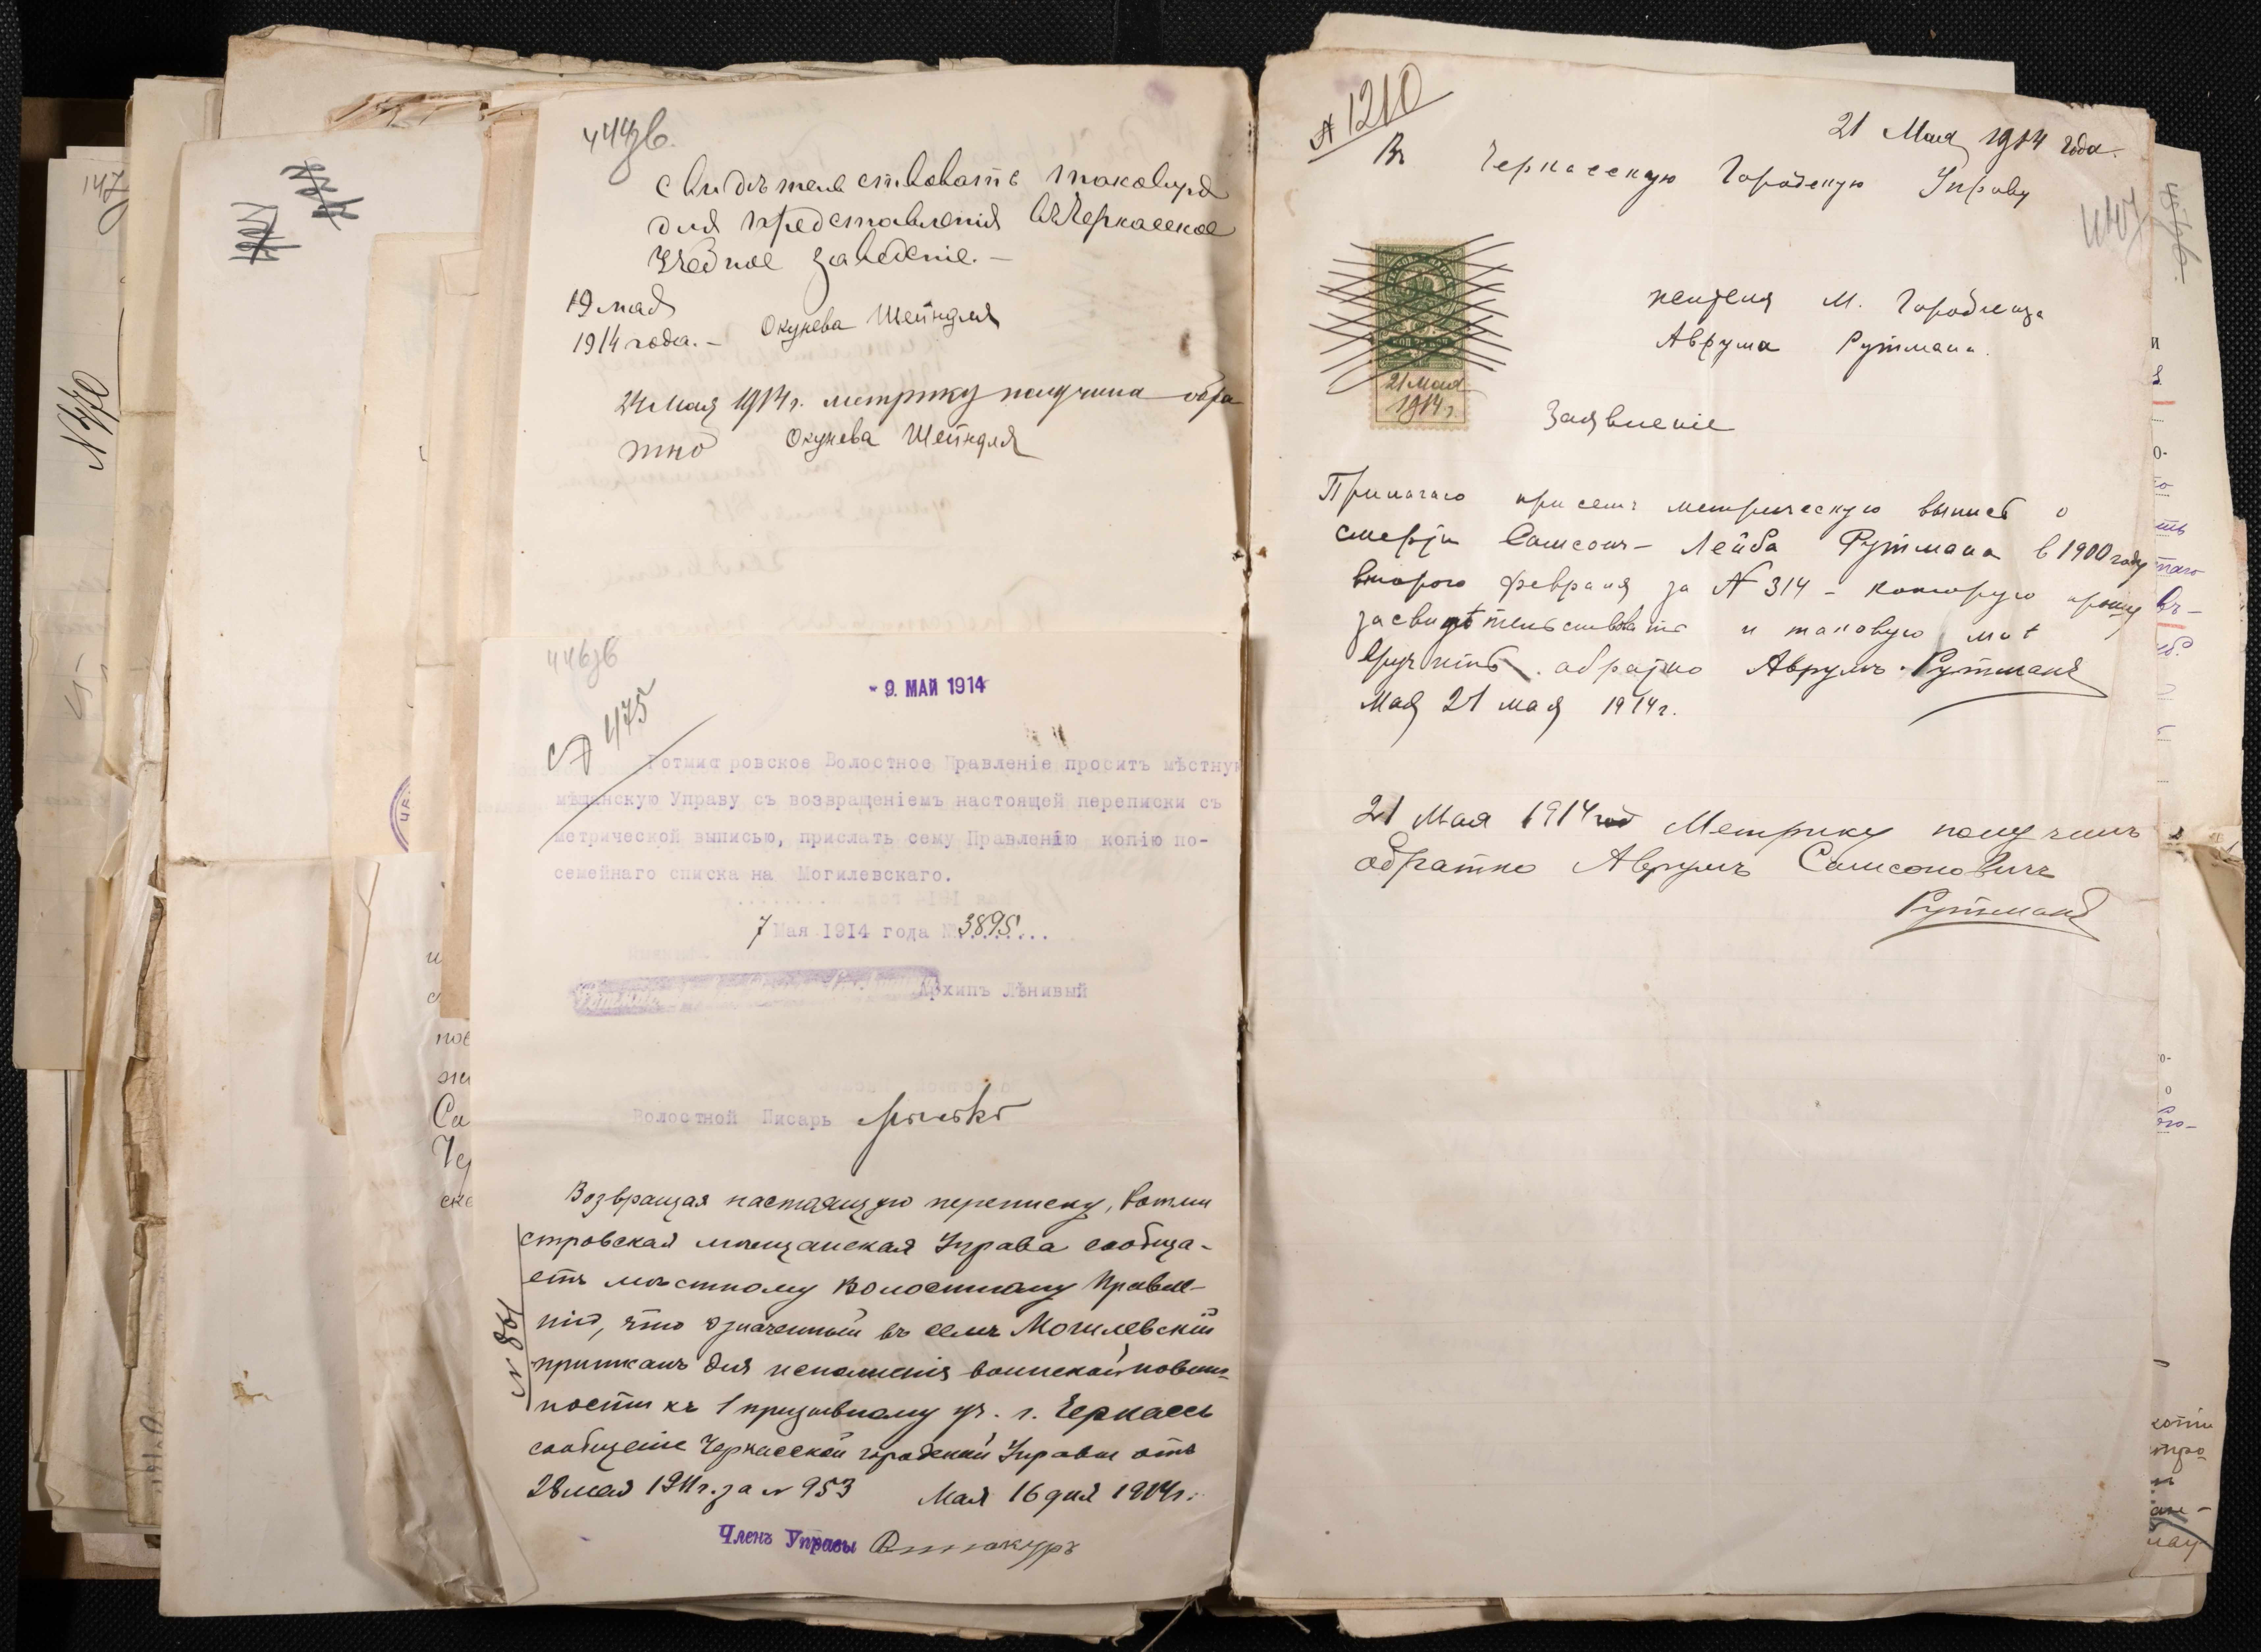 147
N 770
444об.
свидѣтельствовать таковую
для представленія въ Черкасское
Учебное заведеніе.—
19 мая
1914 года.— Окунева Шейндля
24 Мая 1914 г. метрику получила обра
тно Окунева Шейндля
446об
- 9. МАЙ 1914
475
Ротмистровское Волостное Правленіе проситъ мѣстную
мѣщанскую Управу съ возвращеніемъ настоящей переписки съ
метрической выписью, прислать сему Правленію копію по-
семейнаго списка на Могилевскаго.
7 Мая 1914 года № 3895
Архипъ Лѣнивый
Волостной Писарь
Возвращая настоящую переписку, Ротми
стровская мѣщанская Управа сообща-
етъ мѣстному Волостному Правле-
нію, что означенный въ семъ Могилевскій
приписанъ для исполненія воинской повин-
ности къ 1 призывному уч. г. Черкассъ
сообщеніе Черкасской городской Управы отъ
28 мая 1911 г. за № 953 Мая 16 дня 1914 г.
N 861
Членъ Управы
№ 1210
21 Мая 1914 года.
Въ Черкасскую Городскую Управу
447
жителя М. Городища
Аврума Рутмана.
21 Мая
1914 г.
Заявленіе
Прилагаю при семъ метрическую выпись о
смерти Самсонъ-Лейба Рутмана в 1900 году
второго февраля за № 314 - которую прошу
засвидѣтельствовать и таковую мнѣ
вручить обратно Аврумъ Рутманъ
Мая 21 мая 1914 г.
21 Мая 1914 год Метрику получилъ
обратно Аврумъ Самсоновичъ
Рутманъ